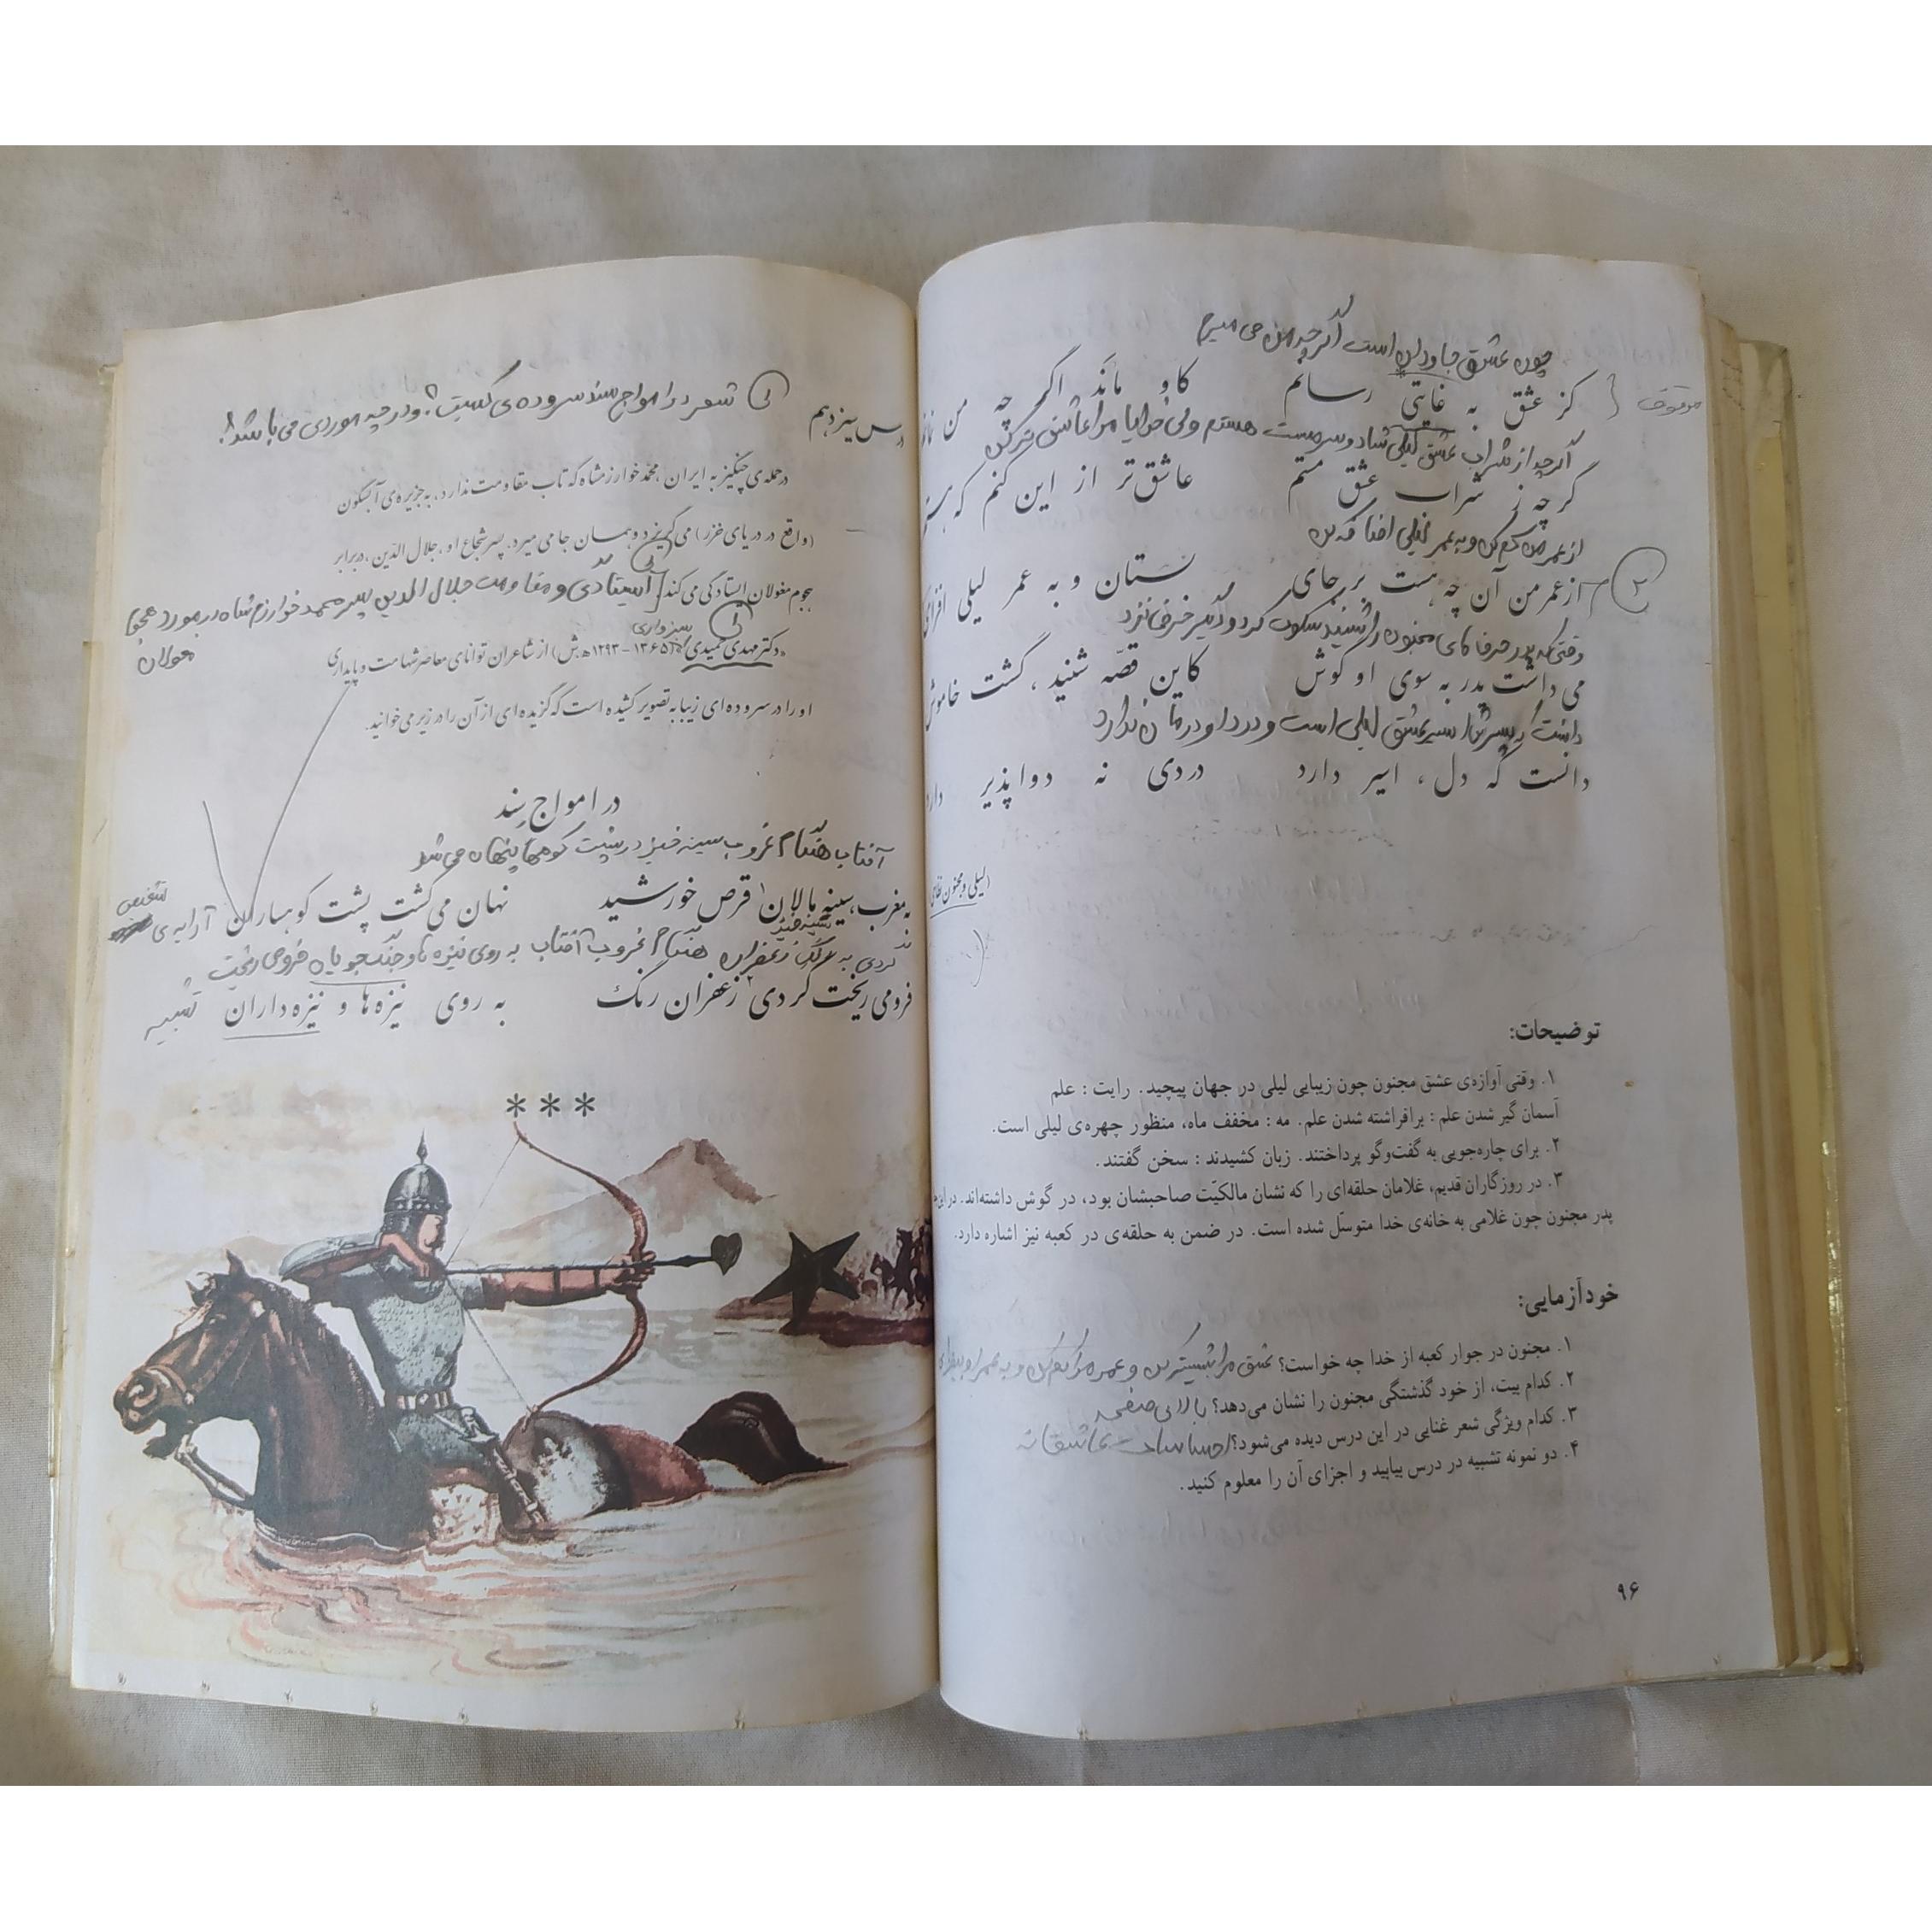 چون عشق جاودان است اگرچه من می میرم
کز عشق به غایتی رسانم کاو مانَد اگر چه من
موقوف
اگرچه از شراب عشق لیلی شاد و سرمست هستم ولی خدایا مرا عاشق تر کن
گرچه ز شراب عشق مستم عاشق‌تر از این کنم که
از عمر من کم کن و به عمر لیلی اضافه کن
۲
از عمر من آن چه هست بر جای بستان و به عمر لیلی افزای
وقتی که پدر حرف های مجنون را شنید سکوت کرد و دیگر حرفی نزد
می داشت پدر به سوی او گوش کاین قصّه شنید، گشت خاموش
دانست که پسرش اسیر عشق لیلی است و درد او درمان ندارد
دانست که دل، اسیر دارد دردی نه دواپذیر دارد
(لیلی و مجنون نظامی
توضیحات:
۱. وقتی آوازه‌ی عشق مجنون چون زیبایی لیلی در جهان پیچید. رایت : علم
آسمان گیر شدن علم : برافراشته شدن علم. مه : مخفف ماه، منظور چهره‌ی لیلی است.
۲. برای چاره‌جویی به گفت‌وگو پرداختند. زبان کشیدند : سخن گفتند.
۳. در روزگاران قدیم، غلامان حلقه‌ای را که نشان مالکیّت صاحبشان بود، در گوش داشته‌اند. در این
پدر مجنون چون غلامی به خانه‌ی خدا متوسّل شده است. در ضمن به حلقه‌ی در کعبه نیز اشاره دارد.
خودآزمایی:
۱. مجنون در جوار کعبه از خدا چه خواست؟ عشق مرا بیشتر کن و عمر مرا کم کن و به عمر او
۲. کدام بیت، از خود گذشتگی مجنون را نشان می‌دهد؟ بالای صفحه
۳. کدام ویژگی شعر غنایی در این درس دیده می‌شود؟ احساسات عاشقانه
۴. دو نمونه تشبیه در درس بیابید و اجزای آن را معلوم کنید.
۹۶
۱ شعر در امواج سند سروده ی کیست؟ و در چه موردی می باشد؟
درس سیزدهم
در حمله‌ی چنگیز به ایران، محمّد خوارزمشاه که تاب مقاومت ندارد، به جزیره‌ی آبسکون
(واقع در دریای خزر) می‌گریزد و همان جا می میرد. پسر شجاع او، جلال الدّین، در برابر
هجوم مغولان ایستادگی می‌کند. ایستادگی و مقاومت جلال الدین پسر محمد خوارزم شاه در مورد هجوم
مغولان
سبزواری
«دکتر مهدی حمیدی» (۱۳۶۵ – ۱۲۹۳ ه.ش) از شاعران توانای معاصر شهامت و پایداری
او را در سروده‌ای زیبا به تصویر کشیده است که گزیده‌ای از آن را در زیر می‌خوانید.
در امواج سِند
آفتاب هنگام غروب سینه خیز در پشت کوهها پنهان می شد
به مغرب، سینه مالان۱ قرص خورشید نهان می‌گشت پشت کوهساران آرایه ی تشخیص
سینه خیز
گردی به رنگ زعفران هنگام غروب آفتاب به روی نیزه ها و جنگجویان فرو می ریخت
فرو می ریخت گردی۲ زعفران رنگ به روی نیزه‌ها و نیزه‌داران تشبیه
***